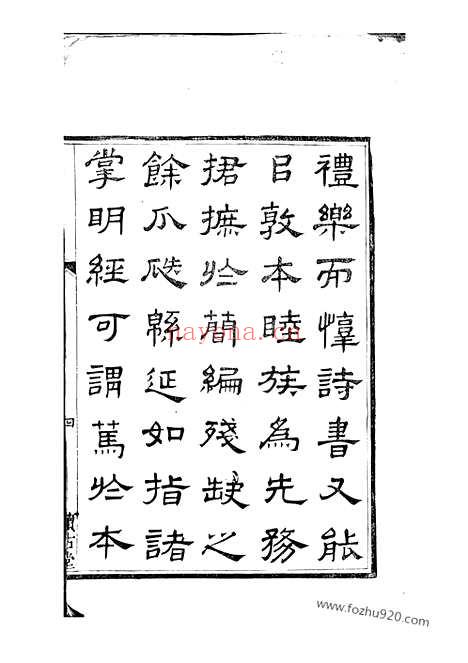 禮樂而惇詩書又能
㠯敦本睦族為先務
捃摭於蕳編殘缺之
餘瓜瓞緜延如指諸
掌明經可謂篤於本
四
nayona.cn
www.fozhu920.com